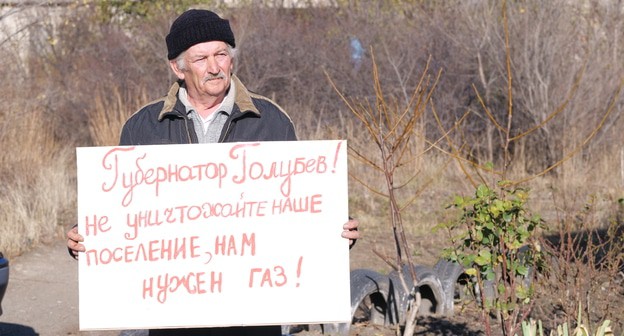 Губернатор Голубев!
не уничтожайте наше
поселение, нам
нужен газ!